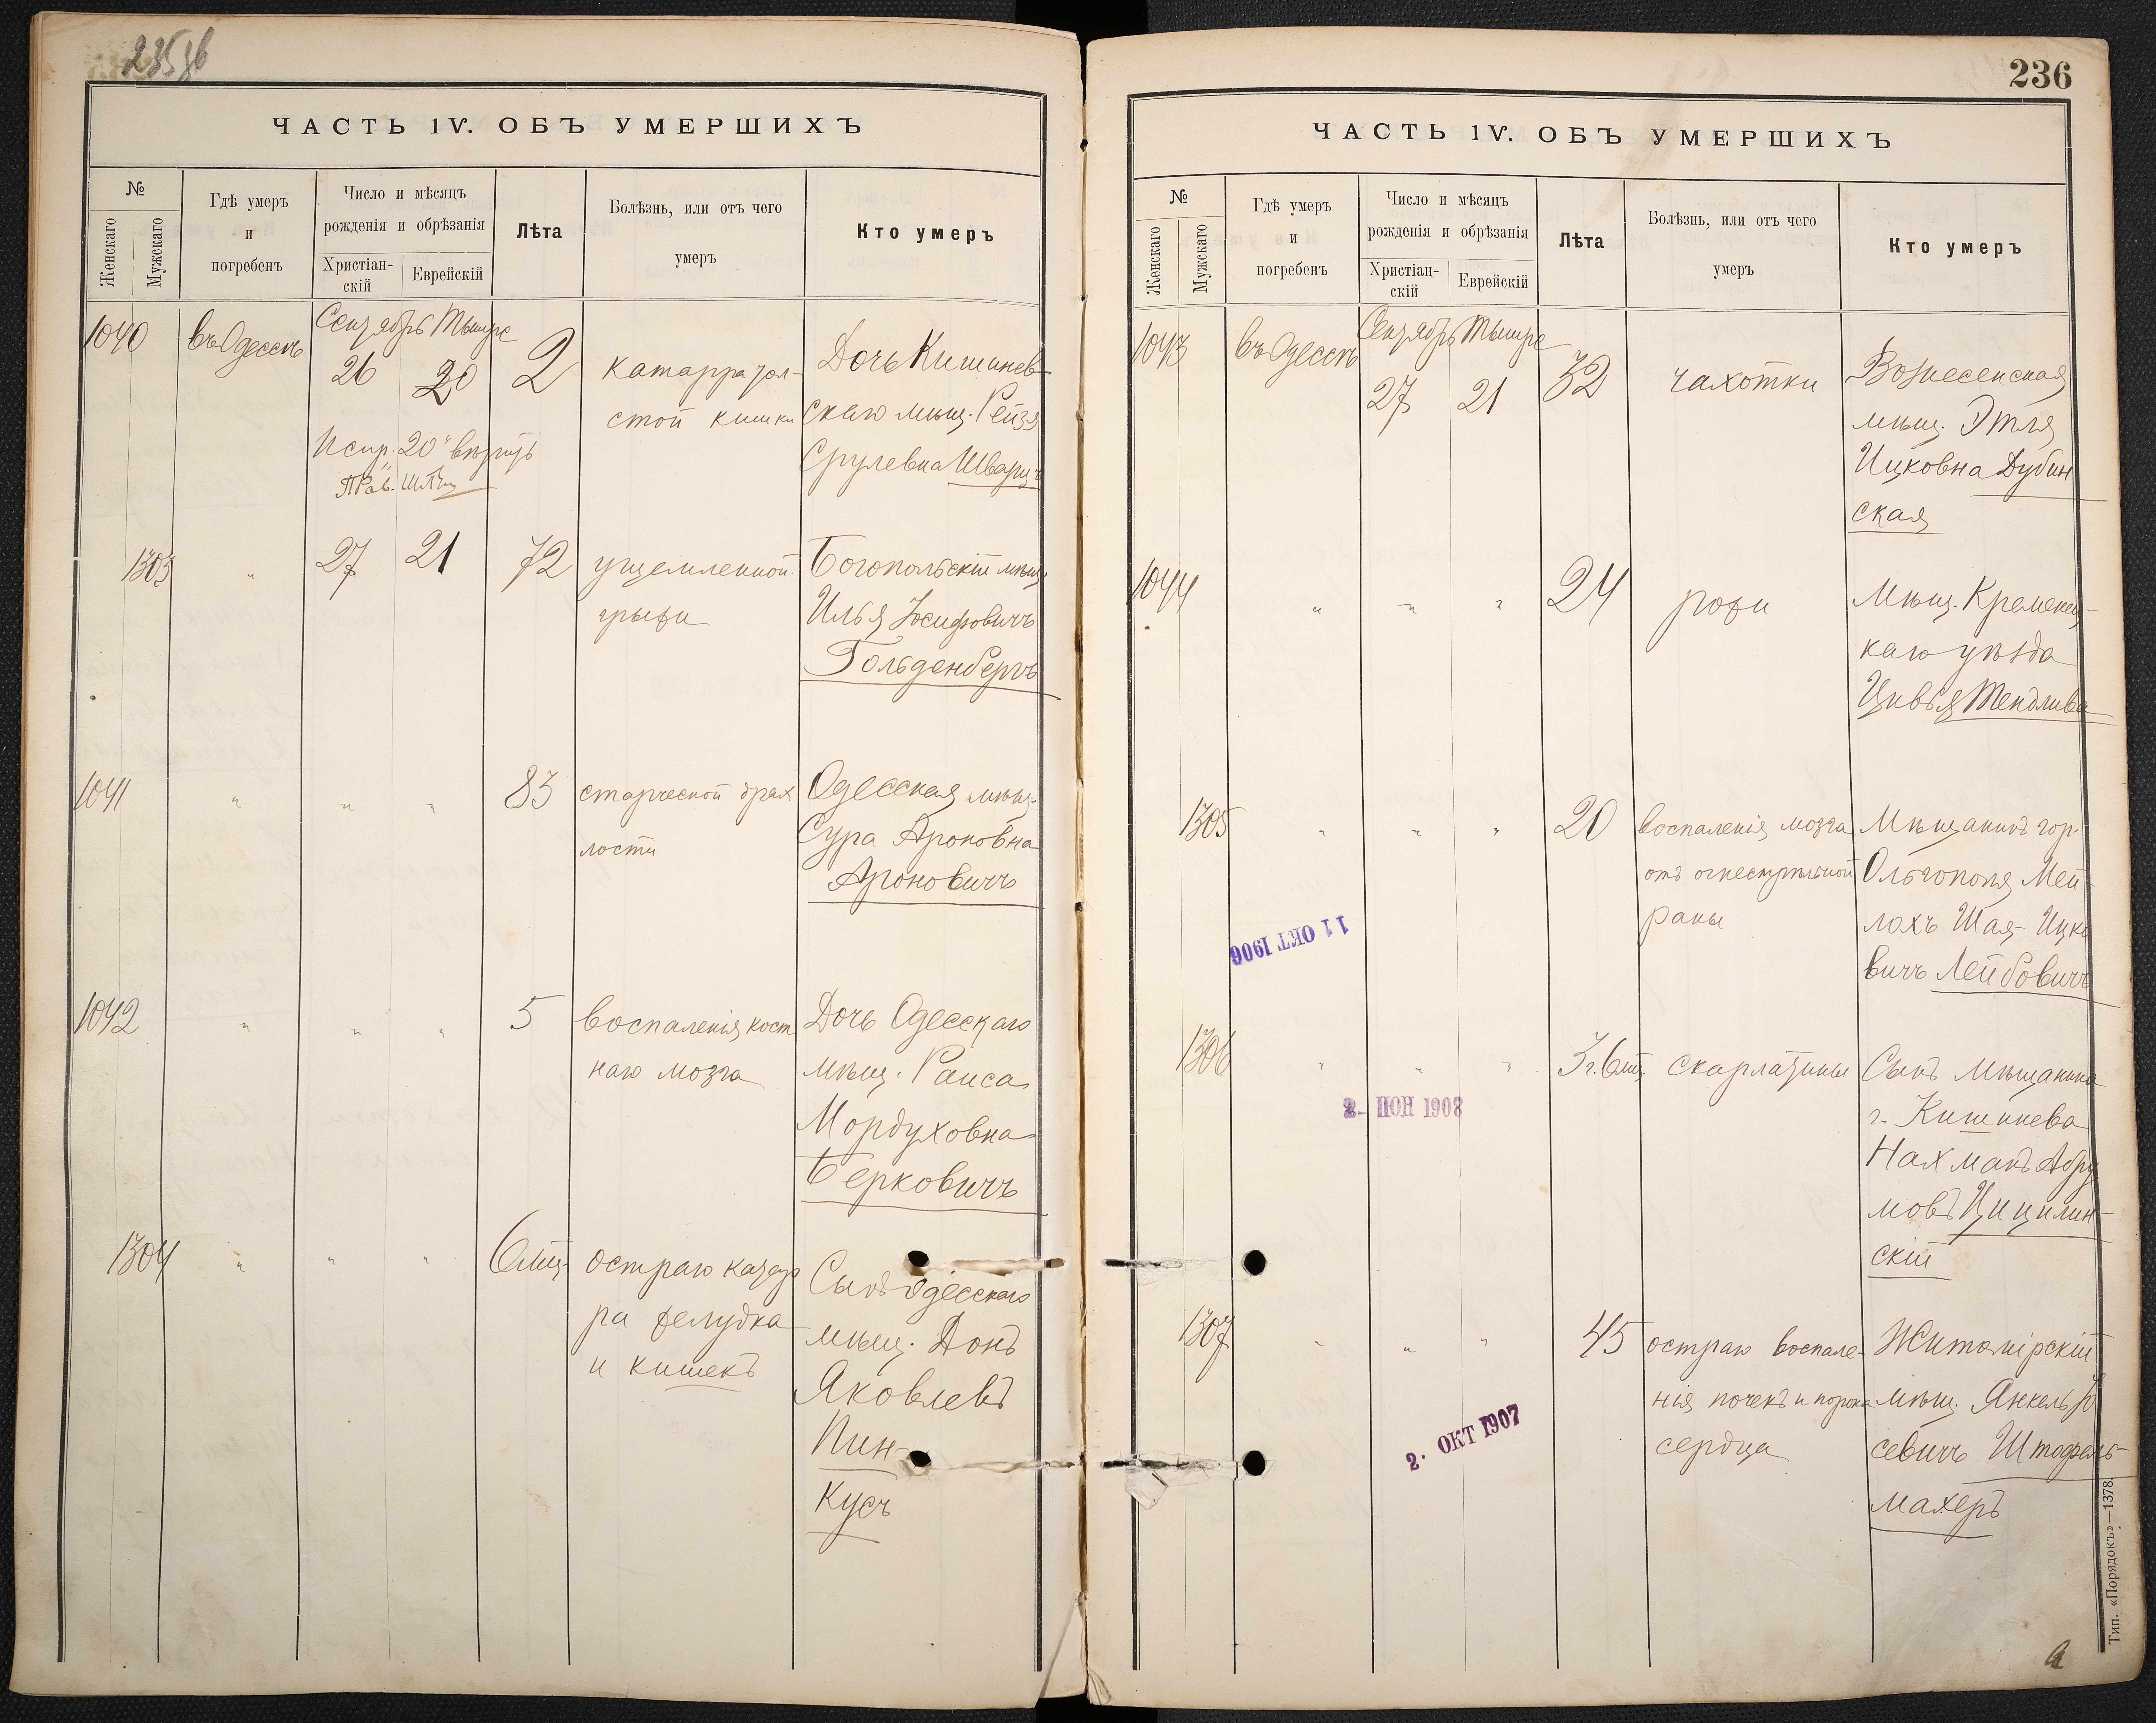 235 об
ЧАСТЬ IV. ОБЪ УМЕРШИХЪ
№
Женскаго
Мужскаго
Гдѣ умеръ
и
погребенъ
Число и мѣсяцъ
рожденія и обрѣзанія
Христіан-
скій
Еврейскій
Лѣта
Болѣзнь, или отъ чего
умеръ
Кто умеръ
1040
въ Одессѣ
Сентябрь Тышре
26 20
2
катарра тол-
стой кишки
Дочь Кишинев-
скаго мѣщ. Рейзя
Срулевна Шварцъ
Испр. 20 вѣрить
1303
"
27 21
72
ущемленной
грыжи
Богопольскій мѣщ.
Илья Іосифовичъ
Гольденбергъ
1041
" " "
83
старческой дрях
лости
Одесская мѣщ.
Сура Ароновна
Ароновичъ
1042
" " "
5
воспаленія кост
наго мозга
Дочь Одесскаго
мѣщ. Раиса
Мордуховна
Берковичъ
1304
" " "
6 мѣц
остраго катар
ра желудка
и кишекъ
Сынъ Одесскаго
мѣщ. Донъ
Яковлевъ
Пин-
кусъ
236
ЧАСТЬ IV. ОБЪ УМЕРШИХЪ
№
Женскаго
Мужскаго
Гдѣ умеръ
и
погребенъ
Число и мѣсяцъ
рожденія и обрѣзанія
Христіан-
скій
Еврейскій
Лѣта
Болѣзнь, или отъ чего
умеръ
Кто умеръ
1043
въ Одессѣ
Сентябрь Тышре
27 21
32
чахотки
Вознесенская
мѣщ. Этля
Ицковна Дубин
ская
1044
" " "
24
рожи
Мѣщ. Кременец-
каго уѣзда
Цивья Тендлива
1305
" " "
20
воспаленія мозга
отъ огнестрѣльной
раны
Мѣщанинъ гор.
Ольгополя Мей
лохъ Шая-Ицко
вичъ Лейбовичъ
11 ОКТ 1906
1306
" " "
3 г. 6 мц
скарлатины
Сынъ мѣщанина
г. Кишинева
Нахманъ Абра
мовъ Цицилин-
скій
2- ІЮН 1908
1307
" " "
45
остраго воспале-
нія почекъ и порока
сердца
Житомірскій
мѣщ. Янкель Іо
севичъ Штофель-
махеръ
2. ОКТ 1907
Тип. «Порядокъ»—1378.